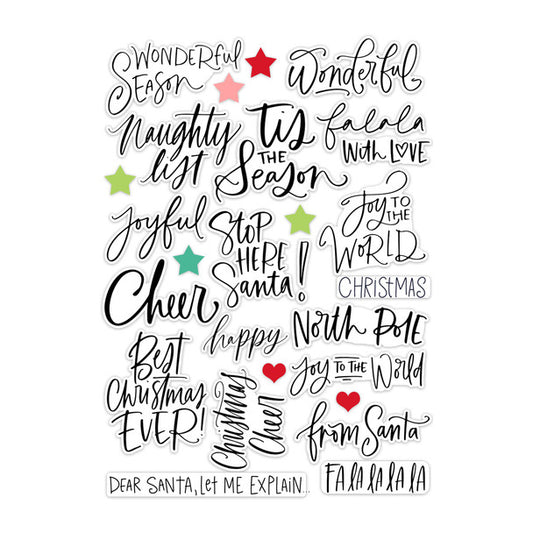 WONDERFUL
SEASON
Wonderful
Naughty
list
TIS
THE
Season
falala
With LOVE
Joyful
STOP
HERE
Santa!
Joy TO
THE
WORLD
CHRISTMAS
Cheer
happy
NORTH POLE
Best
Christmas
EVER!
Christmas
Cheer
Joy TO THE World
from Santa
FALALALALA
DEAR SANTA, Let ME EXPLAIN...